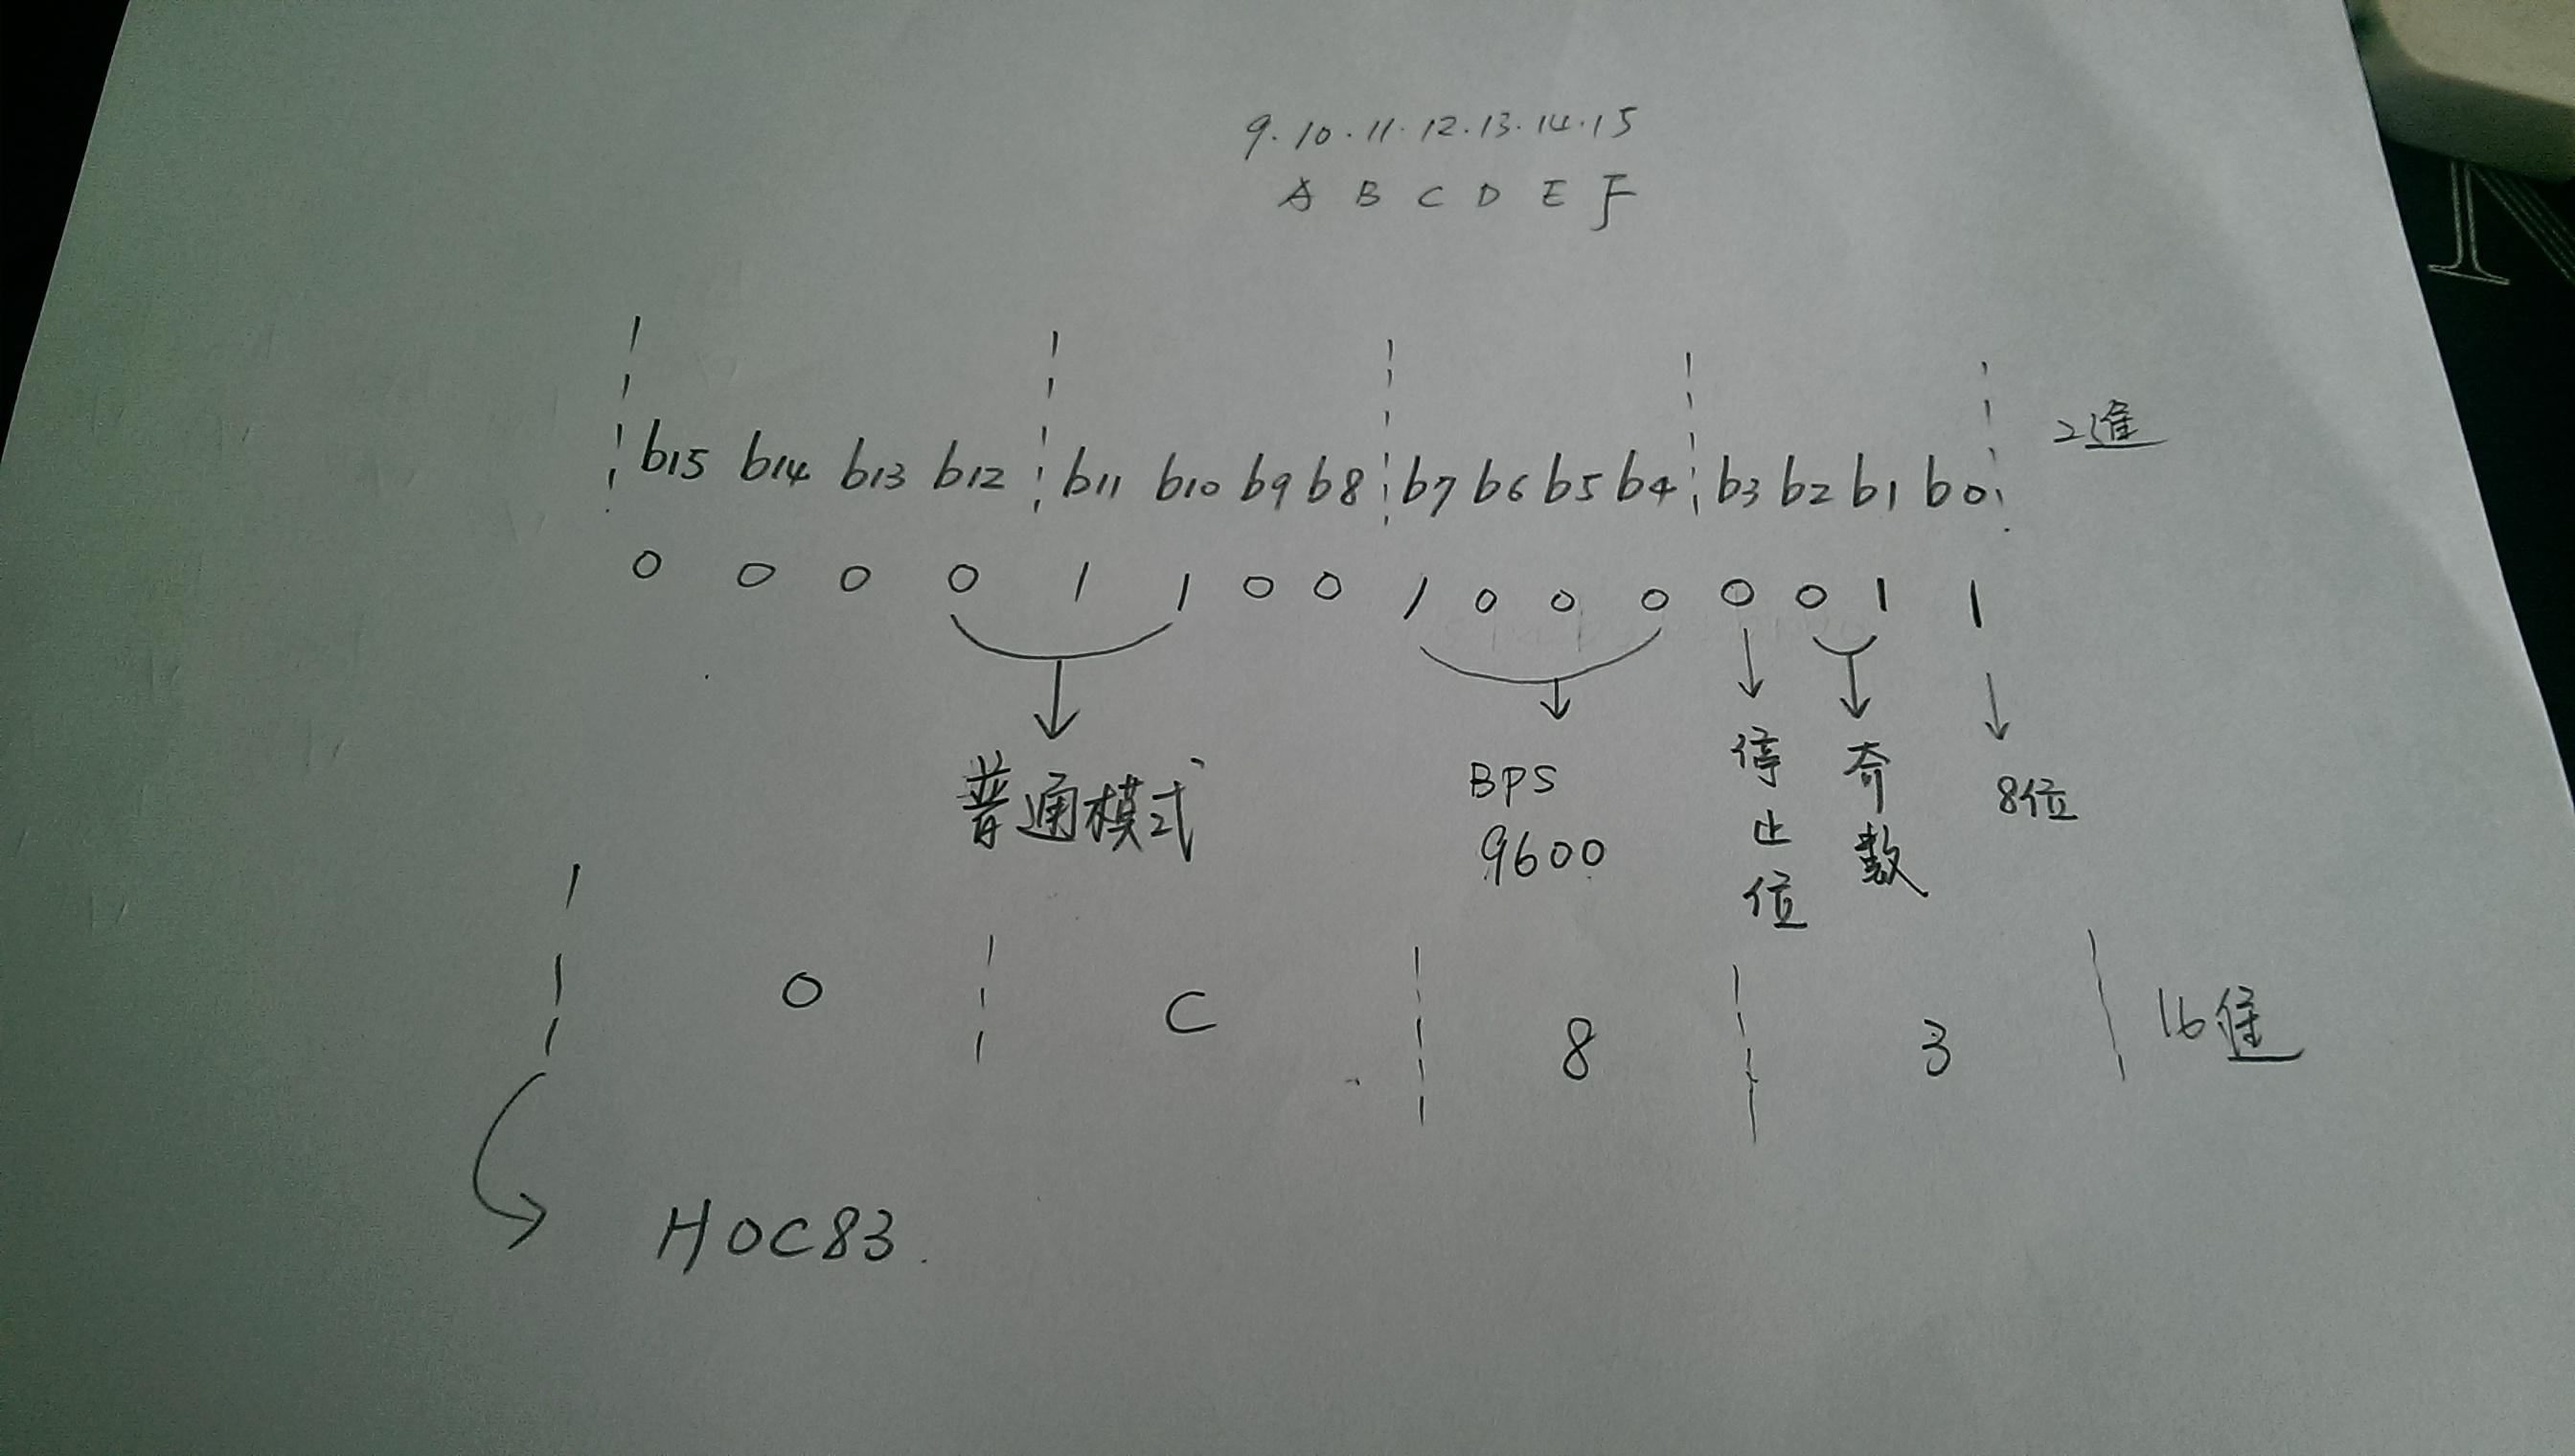 9.10.11.12.13.14.15
A B C D E F
b15 b14 b13 b12 b11 b10 b9 b8 b7 b6 b5 b4 b3 b2 b1 b0
2進
0 0 0 0 1 1 0 0 1 0 0 0 0 0 1 1
普通模式
BPS
9600
停止位
奇数
8位
0 C 8 3
16進
H0C83.